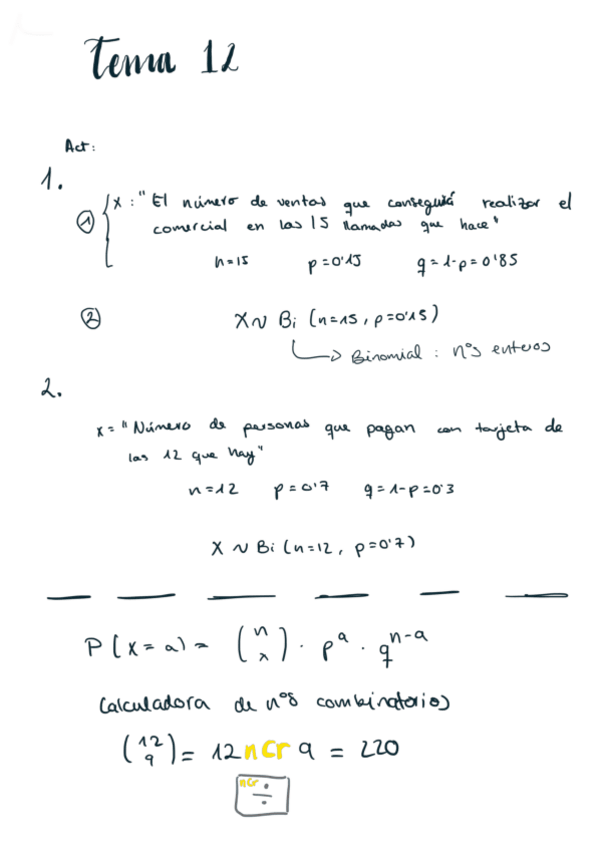 Tema 12
Act:
1.
① x : "El número de ventas que conseguirá realizar el
comercial en las 15 llamadas que hace"
n=15 p=0'15 q=1-p=0'85
② X ~ Bi (n=15, p=0'15)
Binomial : nºs enteros
2.
x = "Número de personas que pagan con tarjeta de
las 12 que hay"
n=12 p=0'7 q=1-p=0'3
X ~ Bi (n=12, p=0'7)
P(x=a) = (n x) · p^a · q^(n-a)
Calculadora de nºs combinatorios
(12 9) = 12 nCr 9 = 220
nCr ÷